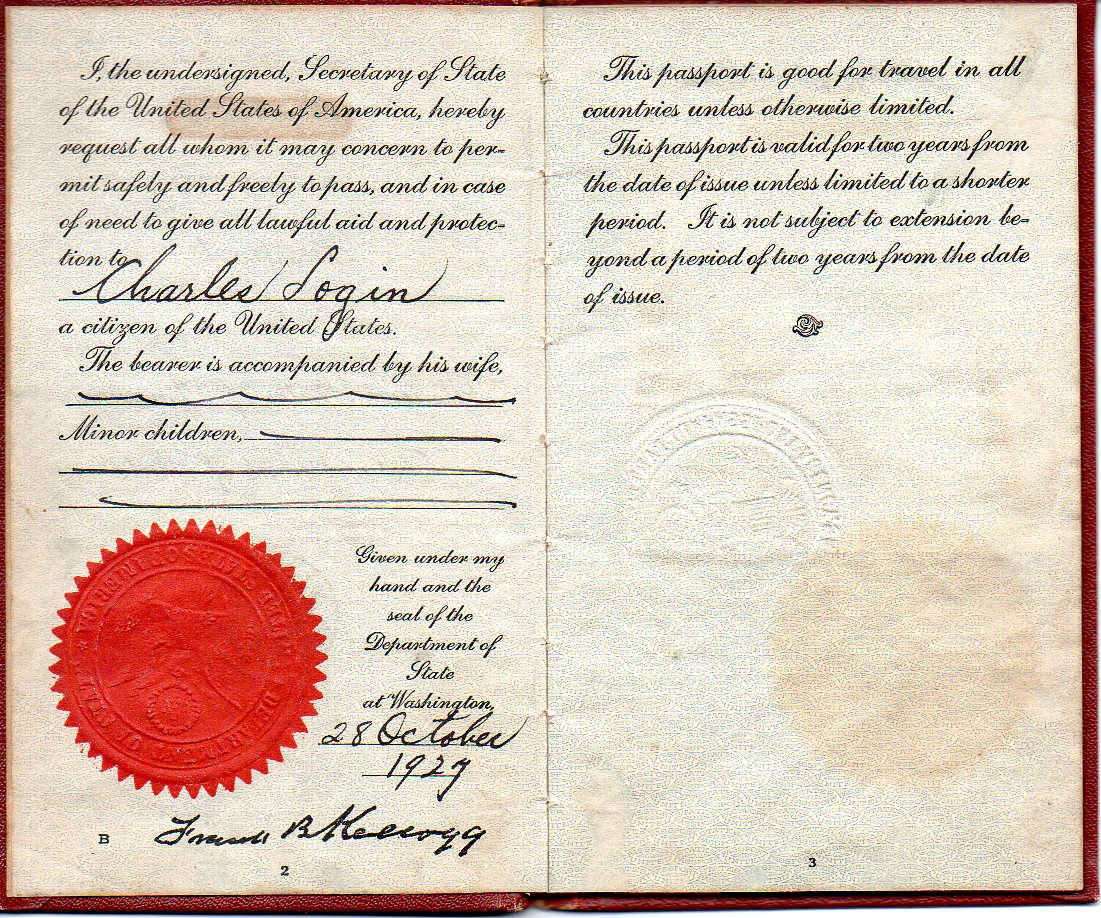 I, the undersigned, Secretary of State
of the United States of America, hereby
request all whom it may concern to per-
mit safely and freely to pass, and in case
of need to give all lawful aid and protec-
tion to
Charles Login
a citizen of the United States.
The bearer is accompanied by his wife,
Minor children,
Given under my
hand and the
seal of the
Department of
State
at Washington,
28 October
1927
Frank B Kellogg
B
2
This passport is good for travel in all
countries unless otherwise limited.
This passport is valid for two years from
the date of issue unless limited to a shorter
period. It is not subject to extension be-
yond a period of two years from the date
of issue.
3